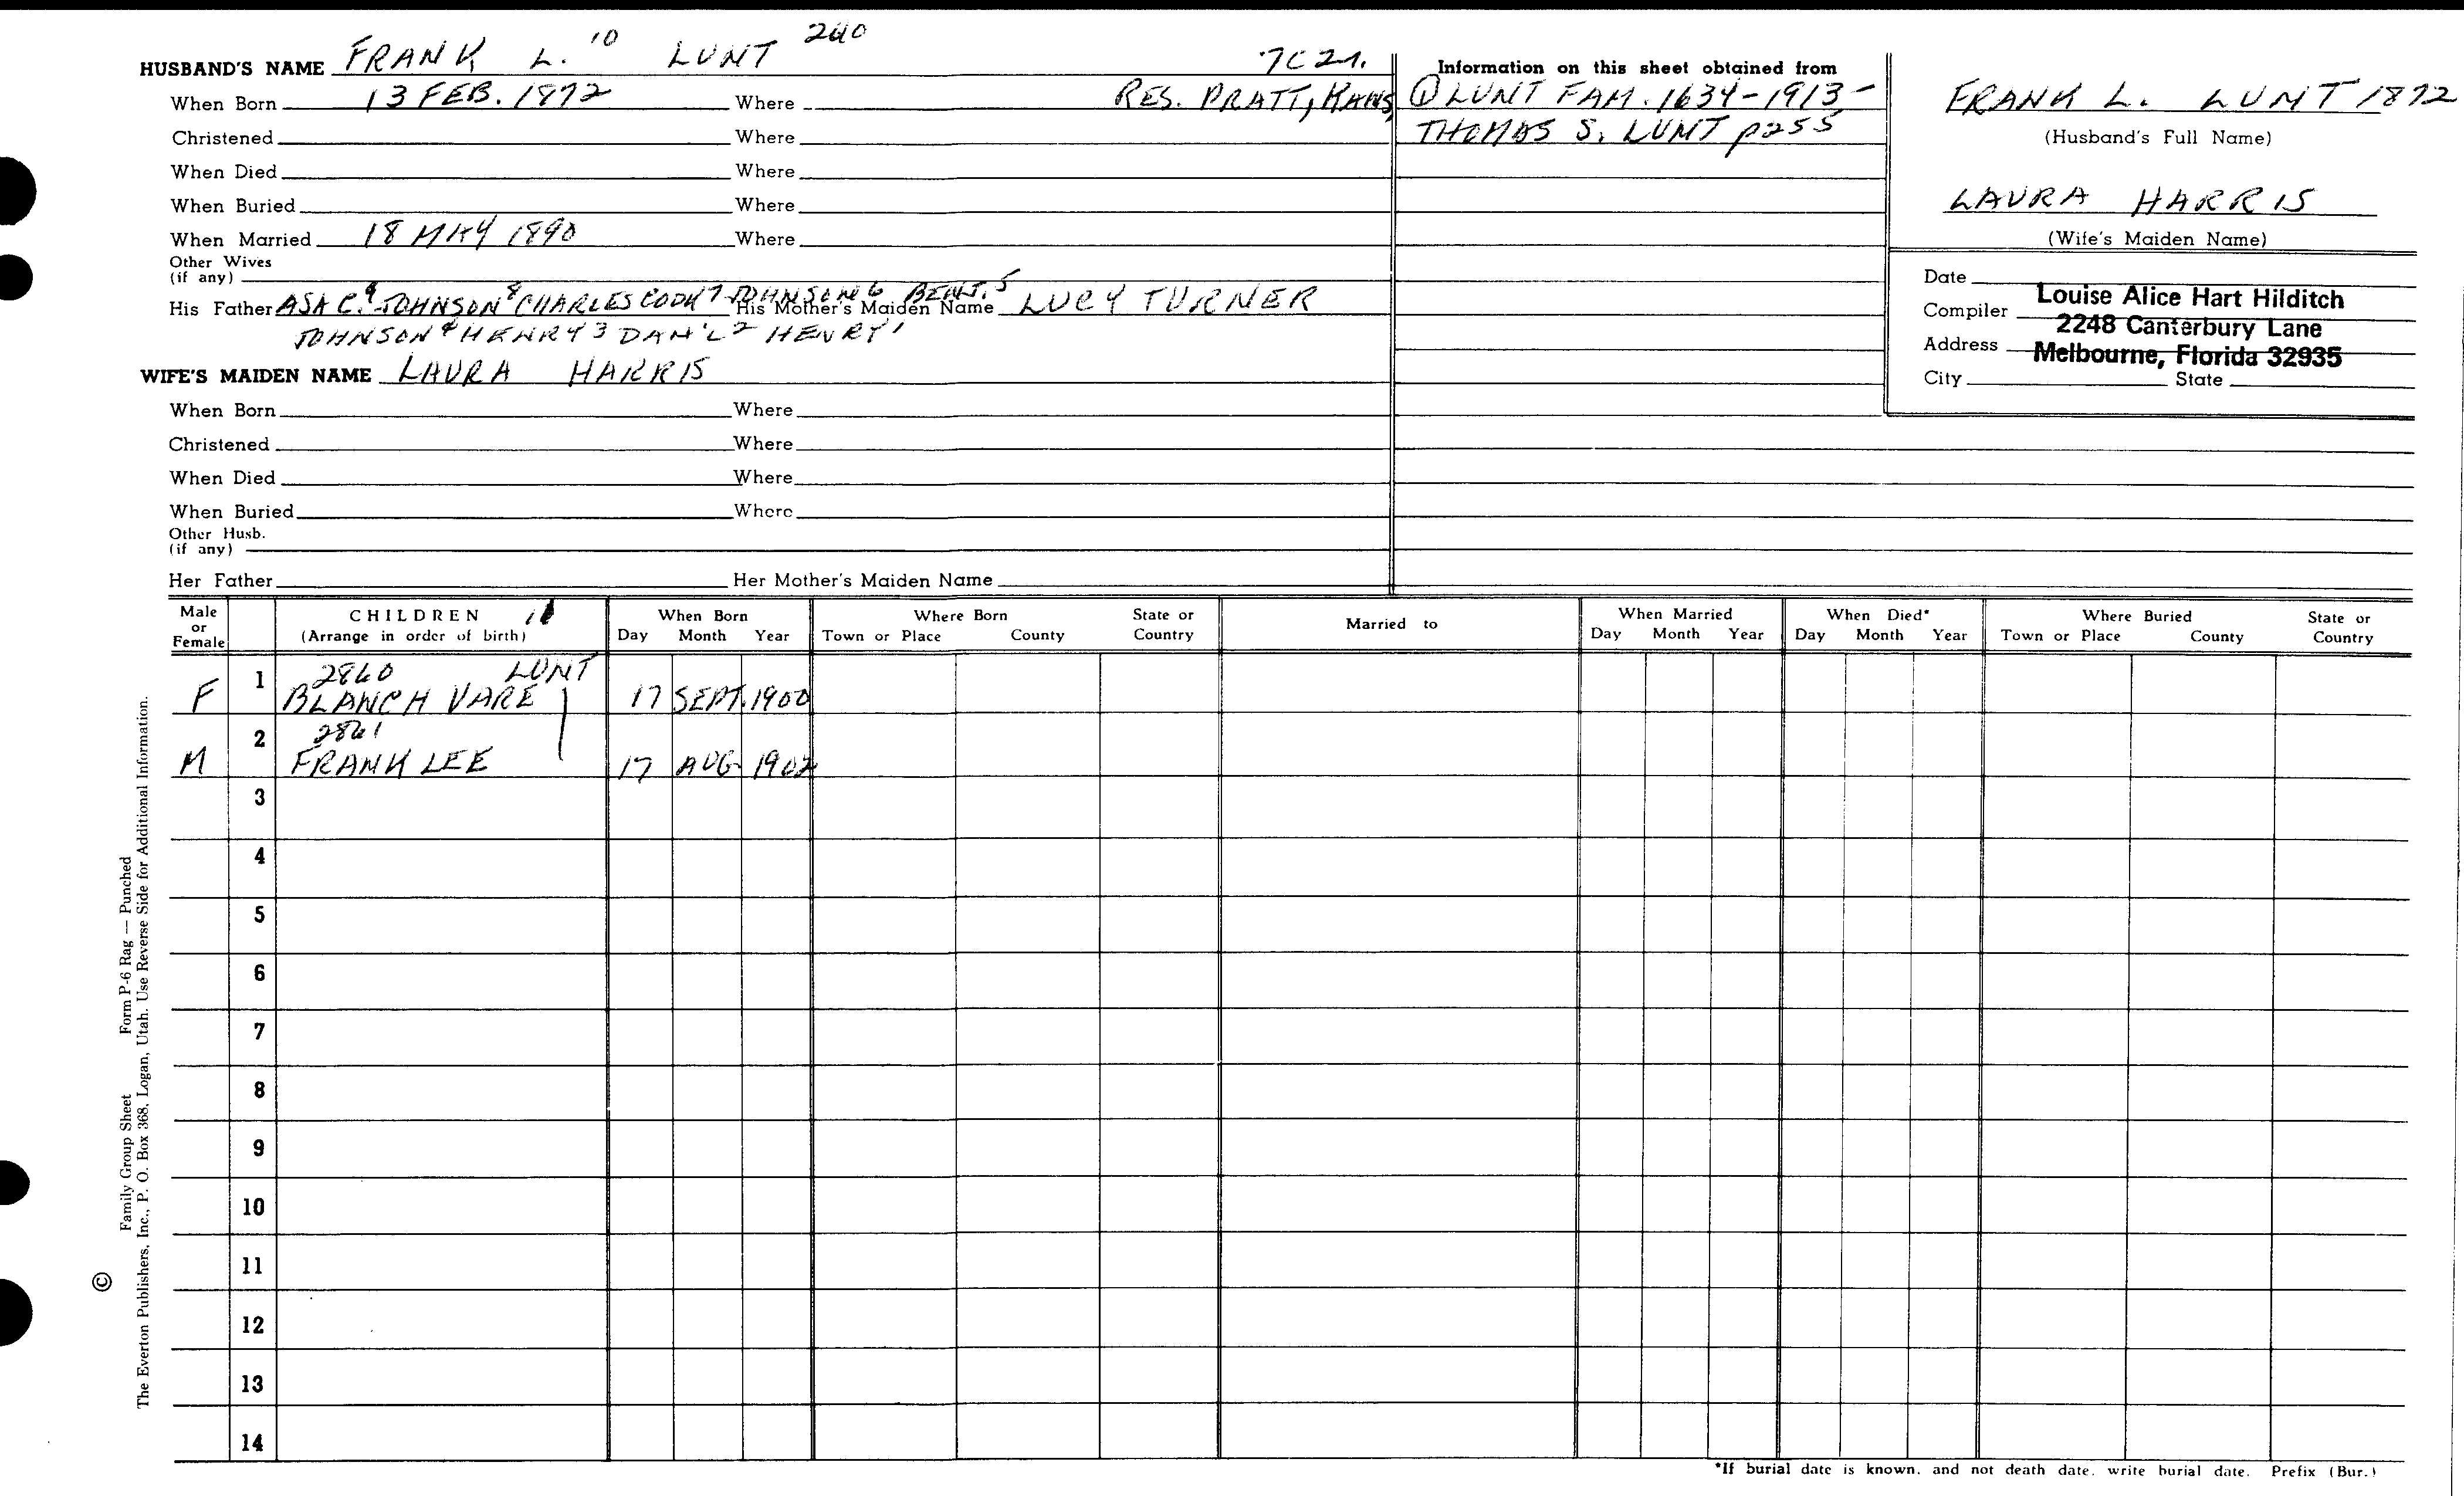 HUSBAND'S NAME FRANK L. 10 LUNT 240 7C21.
When Born 13 FEB. 1872 Where RES. PRATT, KANS,
Christened Where
When Died Where
When Buried Where
When Married 18 MAY 1890 Where
Other Wives
(if any)
His Father ASA C.9 JOHNSON8 CHARLES CODY7 JOHNSON6 BENJ.5 His Mother's Maiden Name LUCY TURNER
JOHNSON4 HENRY3 DAN'L2 HENRY1
WIFE'S MAIDEN NAME LAURA HARRIS
When Born Where
Christened Where
When Died Where
When Buried Where
Other Husb.
(if any)
Her Father Her Mother's Maiden Name
Information on this sheet obtained from
① LUNT FAM. 1634-1913-
THOMAS S. LUNT p255
FRANK L. LUNT 1872
(Husband's Full Name)
LAURA HARRIS
(Wife's Maiden Name)
Date
Compiler Louise Alice Hart Hilditch
Address 2248 Canterbury Lane
Melbourne, Florida 32935
City State
Male or Female CHILDREN 11 (Arrange in order of birth) When Born Day Month Year Where Born Town or Place County State or Country Married to When Married Day Month Year When Died* Day Month Year Where Buried Town or Place County State or Country
1 2860 LUNT
F BLANCH VARE 17 SEPT. 1900
2 2861
M FRANK LEE 17 AUG 1902
3
4
5
6
7
8
9
10
11
12
13
14
*If burial date is known, and not death date, write burial date. Prefix (Bur.)
© Family Group Sheet Form P-6 Rag — Punched
The Everton Publishers, Inc., P. O. Box 368, Logan, Utah. Use Reverse Side for Additional Information.